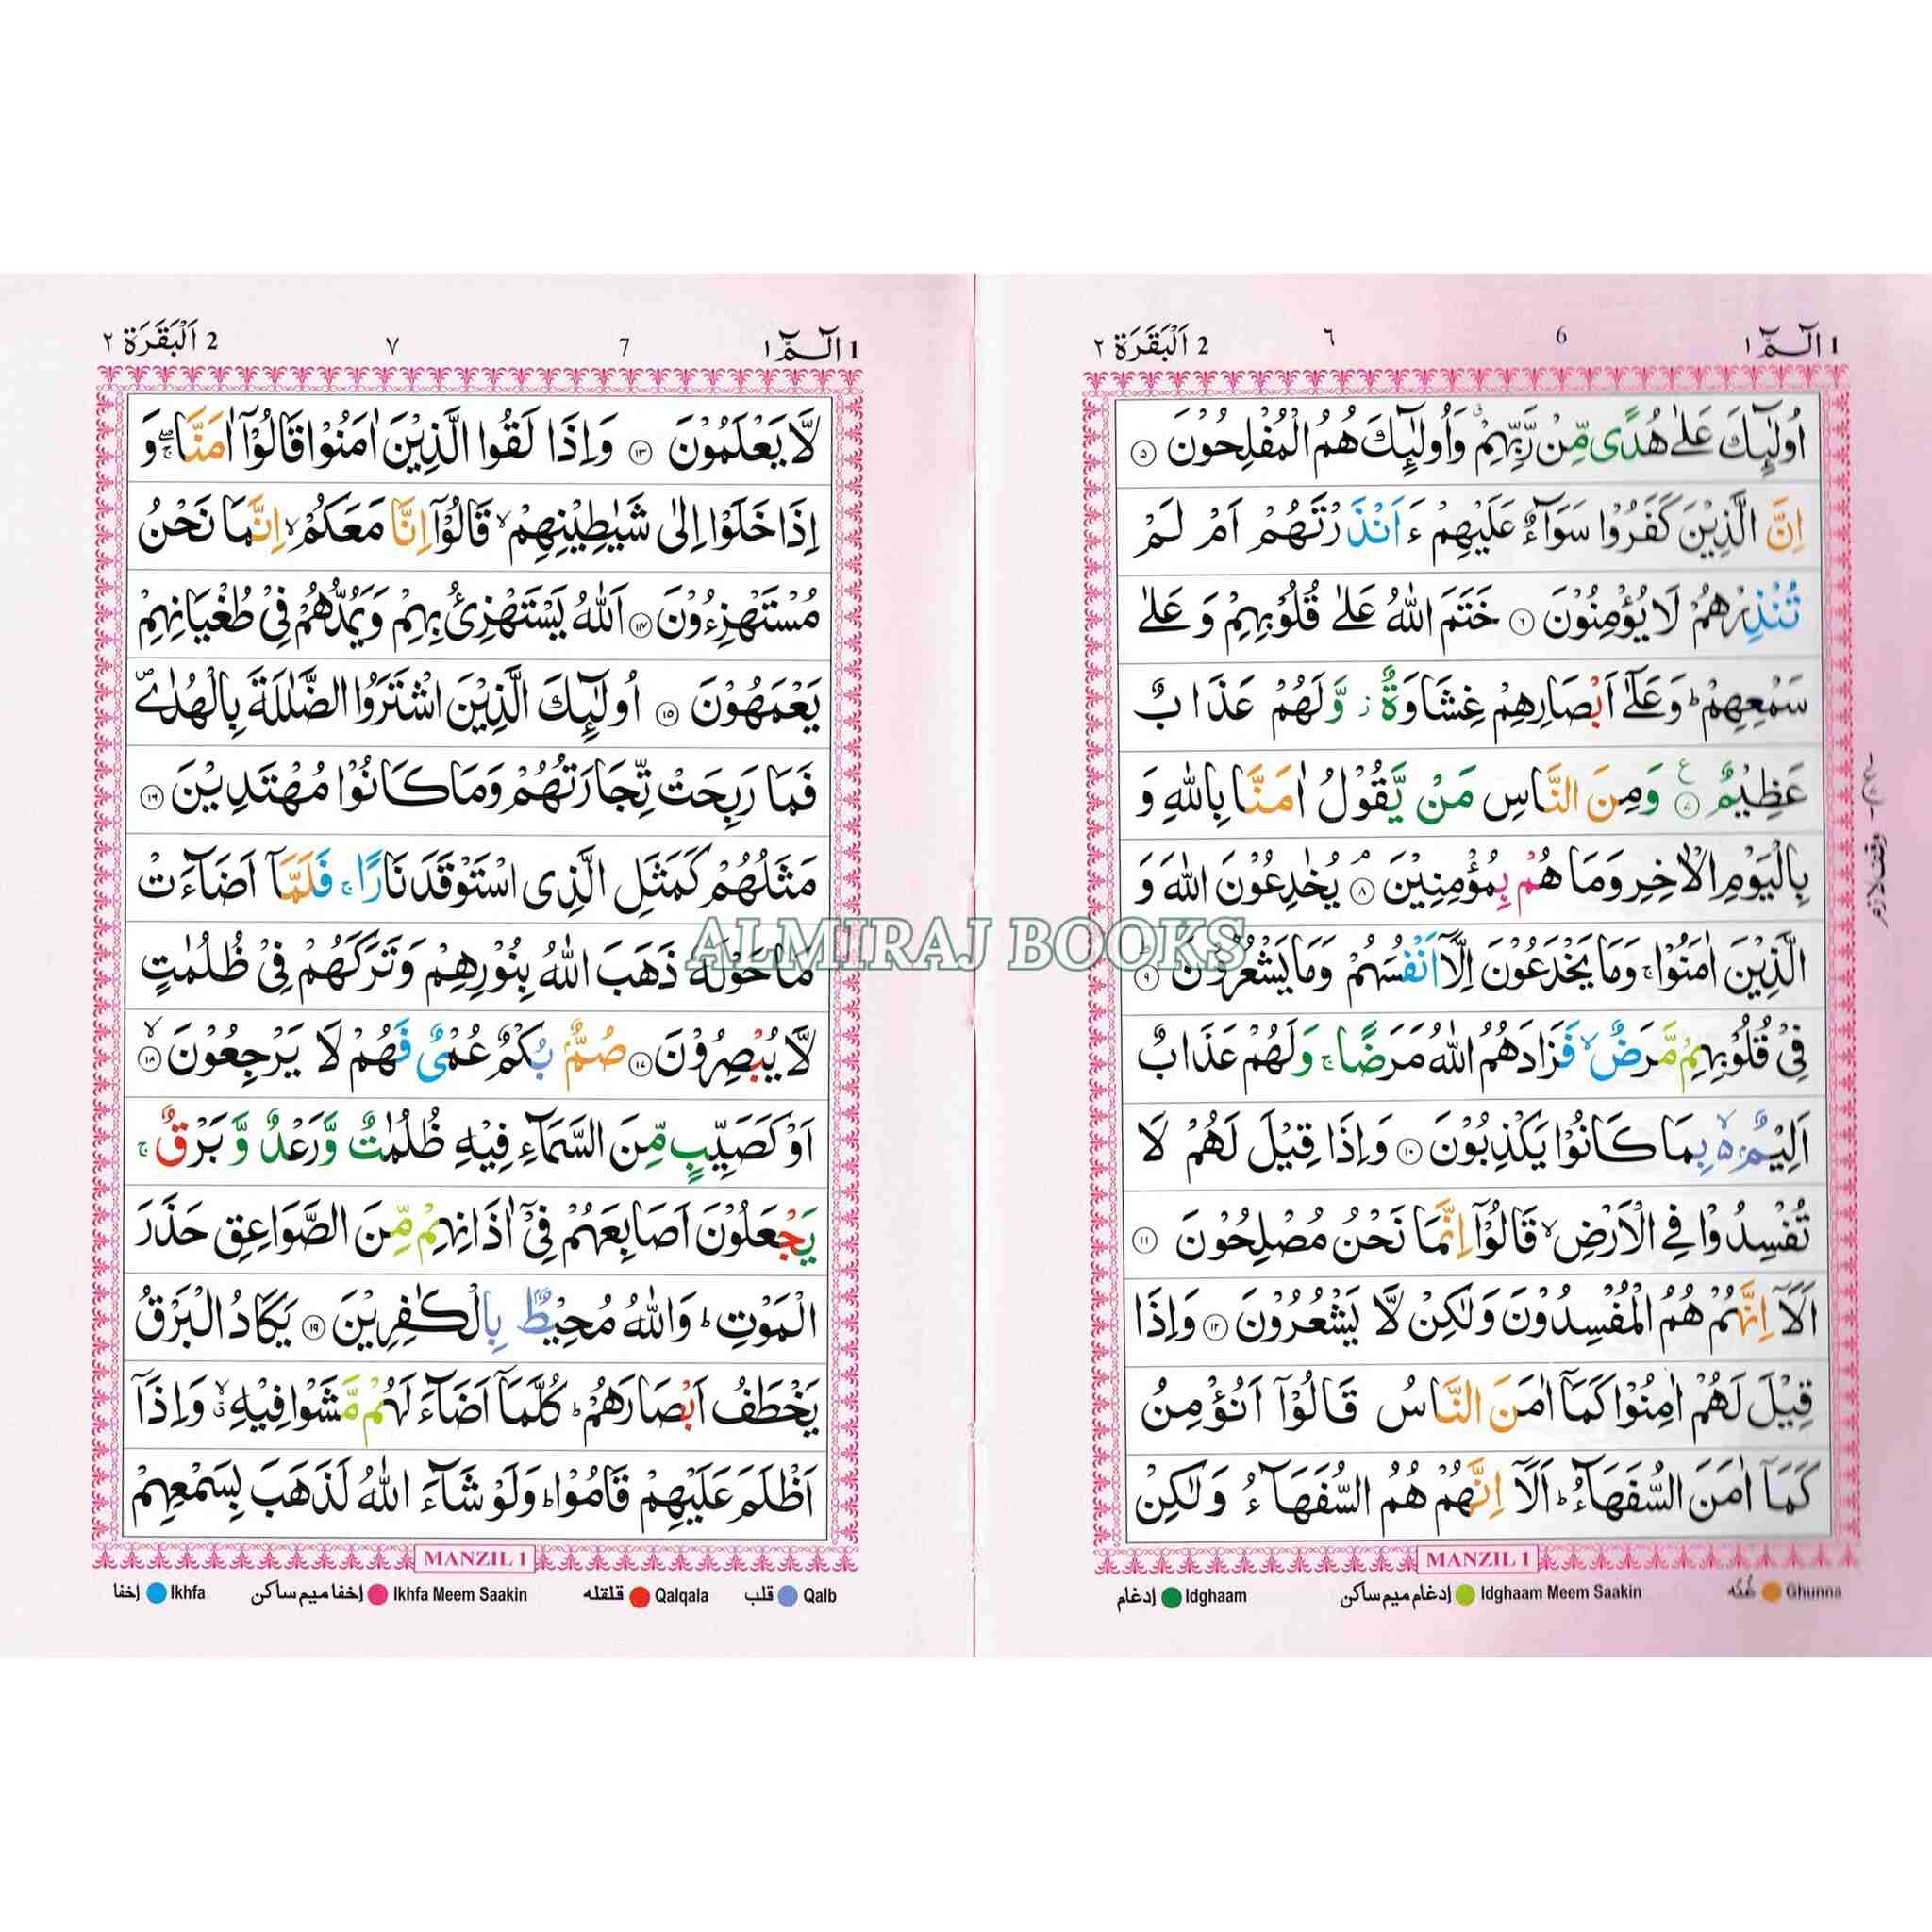 1 الٓمّٓ ١
6
٦
2 اَلْبَقَرَة ٢
اُولٰٓئِكَ عَلٰى هُدًى مِّنْ رَّبِّهِمْ ۙ وَاُولٰٓئِكَ هُمُ الْمُفْلِحُوْنَ ۝٥
اِنَّ الَّذِيْنَ كَفَرُوْا سَوَآءٌ عَلَيْهِمْ ءَاَنْذَرْتَهُمْ اَمْ لَمْ
تُنْذِرْهُمْ لَا يُؤْمِنُوْنَ ۝٦ خَتَمَ اللّٰهُ عَلٰى قُلُوْبِهِمْ وَ عَلٰى
سَمْعِهِمْ ؕ وَ عَلٰٓى اَبْصَارِهِمْ غِشَاوَةٌ ز وَّ لَهُمْ عَذَابٌ
عَظِيْمٌ ۝٧ ع وَ مِنَ النَّاسِ مَنْ يَّقُوْلُ اٰمَنَّا بِاللّٰهِ وَ
بِالْيَوْمِ الْاٰخِرِ وَمَا هُمْ بِمُؤْمِنِيْنَ ۘ ۝٨ يُخٰدِعُوْنَ اللّٰهَ وَ
الَّذِيْنَ اٰمَنُوْا ۚ وَمَا يَخْدَعُوْنَ اِلَّآ اَنْفُسَهُمْ وَمَا يَشْعُرُوْنَ ۝٩
فِيْ قُلُوْبِهِمْ مَّرَضٌ ۙ فَزَادَهُمُ اللّٰهُ مَرَضًا ۚ وَلَهُمْ عَذَابٌ
اَلِيْمٌ ۢ ۙ۬ بِمَا كَانُوْا يَكْذِبُوْنَ ۝١٠ وَاِذَا قِيْلَ لَهُمْ لَا
تُفْسِدُوْا فِي الْاَرْضِ ۙ قَالُوْٓا اِنَّمَا نَحْنُ مُصْلِحُوْنَ ۝١١
اَلَآ اِنَّهُمْ هُمُ الْمُفْسِدُوْنَ وَلٰكِنْ لَّا يَشْعُرُوْنَ ۝١٢ وَاِذَا
قِيْلَ لَهُمْ اٰمِنُوْا كَمَآ اٰمَنَ النَّاسُ قَالُوْٓا اَنُؤْمِنُ
كَمَآ اٰمَنَ السُّفَهَآءُ ؕ اَلَآ اِنَّهُمْ هُمُ السُّفَهَآءُ وَلٰكِنْ
وقف لازم
MANZIL 1
Ghunna غنّه
Idghaam Meem Saakin إدغام ميم ساكن
Idghaam إدغام
1 الٓمّٓ ١
7
٧
2 اَلْبَقَرَة ٢
لَّا يَعْلَمُوْنَ ۝١٣ وَاِذَا لَقُوا الَّذِيْنَ اٰمَنُوْا قَالُوْٓا اٰمَنَّا ۖۚ وَ
اِذَا خَلَوْا اِلٰى شَيٰطِيْنِهِمْ ۙ قَالُوْٓا اِنَّا مَعَكُمْ ۙ اِنَّمَا نَحْنُ
مُسْتَهْزِءُوْنَ ۝١٤ اَللّٰهُ يَسْتَهْزِئُ بِهِمْ وَيَمُدُّهُمْ فِيْ طُغْيَانِهِمْ
يَعْمَهُوْنَ ۝١٥ اُولٰٓئِكَ الَّذِيْنَ اشْتَرَوُا الضَّلٰلَةَ بِالْهُدٰى ۪
فَمَا رَبِحَتْ تِّجَارَتُهُمْ وَمَا كَانُوْا مُهْتَدِيْنَ ۝١٦
مَثَلُهُمْ كَمَثَلِ الَّذِى اسْتَوْقَدَ نَارًا ۚ فَلَمَّآ اَضَآءَتْ
مَا حَوْلَهٗ ذَهَبَ اللّٰهُ بِنُوْرِهِمْ وَتَرَكَهُمْ فِيْ ظُلُمٰتٍ
لَّا يُبْصِرُوْنَ ۝١٧ صُمٌّۢ بُكْمٌ عُمْيٌ فَهُمْ لَا يَرْجِعُوْنَ ۙ ۝١٨
اَوْ كَصَيِّبٍ مِّنَ السَّمَآءِ فِيْهِ ظُلُمٰتٌ وَّرَعْدٌ وَّ بَرْقٌ ۚ
يَجْعَلُوْنَ اَصَابِعَهُمْ فِيْٓ اٰذَانِهِمْ مِّنَ الصَّوَاعِقِ حَذَرَ
الْمَوْتِ ؕ وَاللّٰهُ مُحِيْطٌۢ بِالْكٰفِرِيْنَ ۝١٩ يَكَادُ الْبَرْقُ
يَخْطَفُ اَبْصَارَهُمْ ؕ كُلَّمَآ اَضَآءَ لَهُمْ مَّشَوْا فِيْهِ ۙۗ وَاِذَآ
اَظْلَمَ عَلَيْهِمْ قَامُوْا ؕ وَلَوْ شَآءَ اللّٰهُ لَذَهَبَ بِسَمْعِهِمْ
MANZIL 1
Qalb قلب
Qalqala قلقله
Ikhfa Meem Saakin إخفا ميم ساكن
Ikhfa إخفا
ALMIRAJ BOOKS